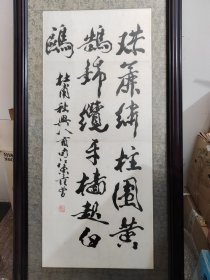 珠簾繡柱圍黃
鵠錦纜牙檣起白
鷗
杜甫秋興八首